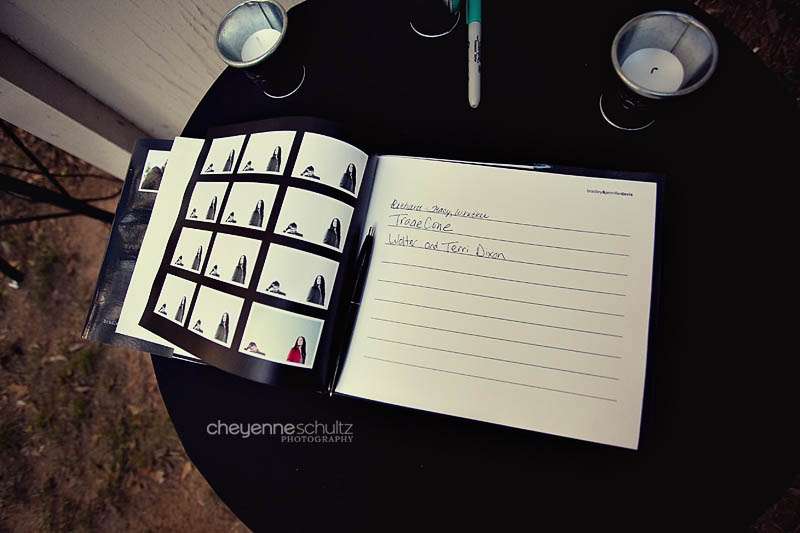 bradley&jenniferdavis
Richard - Stacy,
Trace Cone
Walter and Terri Dixon
cheyenneschultz
PHOTOGRAPHY